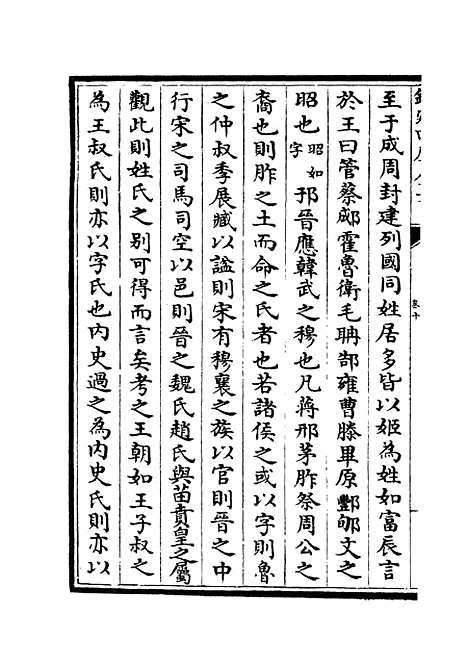 至于成周封建列國同姓居多皆以姬為姓如富辰言
於王曰管蔡郕霍魯衛毛聃郜雍曹滕畢原酆郇文之
昭也昭如字邘晉應韓武之穆也凡蔣邢茅胙祭周公之
裔也則胙之土而命之氏者也若諸侯之或以字則魯
之仲叔季展臧以謚則宋有穆襄之族以官則晉之中
行宋之司馬司空以邑則晉之魏氏趙氏與苗賁皇之屬
觀此則姓氏之別可得而言矣考之王朝如王子叔之
為王叔氏則亦以字氏也内史過之為内史氏則亦以